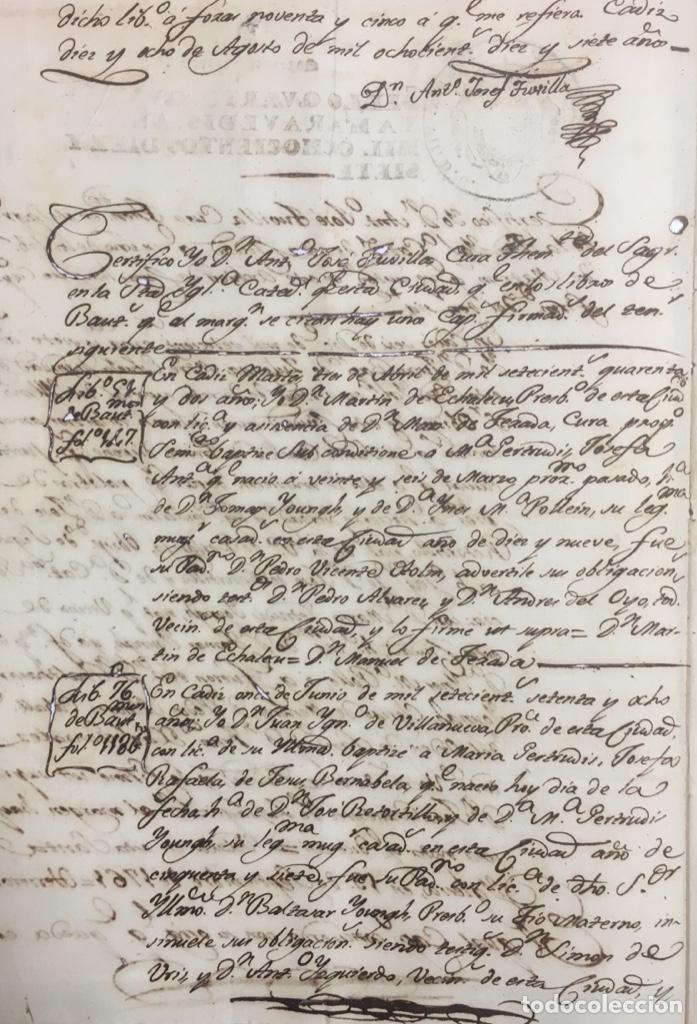 dicho lib.º á foxas noventa y cinco á q.e me refiero. Cádiz
diez y ocho de Agosto de mil ochocient.s diez y siete años
D.n Ant.º Josef Fuvilla
Certifico Yo D.n Ant.º José Fuvilla Cura Then.te del Sagr.
en la Sta. Ygl.a Cated.l de esta Ciudad, q.e en los libros de
Baut.s q.e al marg.n se citan hay unos Cap.s firmad.s del ten.r
siguiente
Lib.º 51
de Baut.
fol.º 147.
En Cadiz Martes, tres de Abril de mil setecient.s quarenta
y dos años; Yo D.n Martin de Echaleu, Presb.º de esta Ciud.
con lic.a y asistencia de D.n Man.l de Tezada, Cura prop.º
Sem.º baptize sub conditione a M.a Gertrudis, Josefa
Ant.a q.e nacio á veinte y seis de Marzo prox.mo pasado, h.a
de D.n Tomas Youngh, y de D.a Ynes M.a Pollein, su leg.ma
mug.r casad.s en esta Ciudad año de diez y nueve, fue
su Pad.no D.n Pedro Vicente Rolin, advertile sus obligacion.s
siendo test.s D.n Pedro Alvarez, y D.n Andres del Oyo, tod.
Vecin.s de esta Ciudad, y lo firme ut supra = D.n Mar-
tin de Echaleu = D.n Manuel de Tezada
Lib. 76
de Baut.
fol.º 186
En Cadiz once de Junio de mil setecient.s setenta y ocho
años; Yo D.n Juan Ygn.º de Villanueva, Pro. de esta Ciudad,
con lic.a de su Yllma. baptizé a Maria Gertrudis, Josefa
Rafaela, de Jesus Bernabela, q.e nacio hoy dia de la
fecha h.a de D.n José Retortillo, y de D.a M.a Gertrudis
Youngh, su leg.ma mug.r casad.s en esta Ciudad año de
cinquenta y siete, fue su Pad.no con lic.a de dho. S.or
Yllmo. D.n Baltasar Youngh, Presb.º su Tio Materno, in-
sinuele sus obligacion.s siendo testig.s D.n Simon de
Uris, y D.n Ant.º Yzquierdo, Vecin.s de esta Ciudad, y
todocoleccion